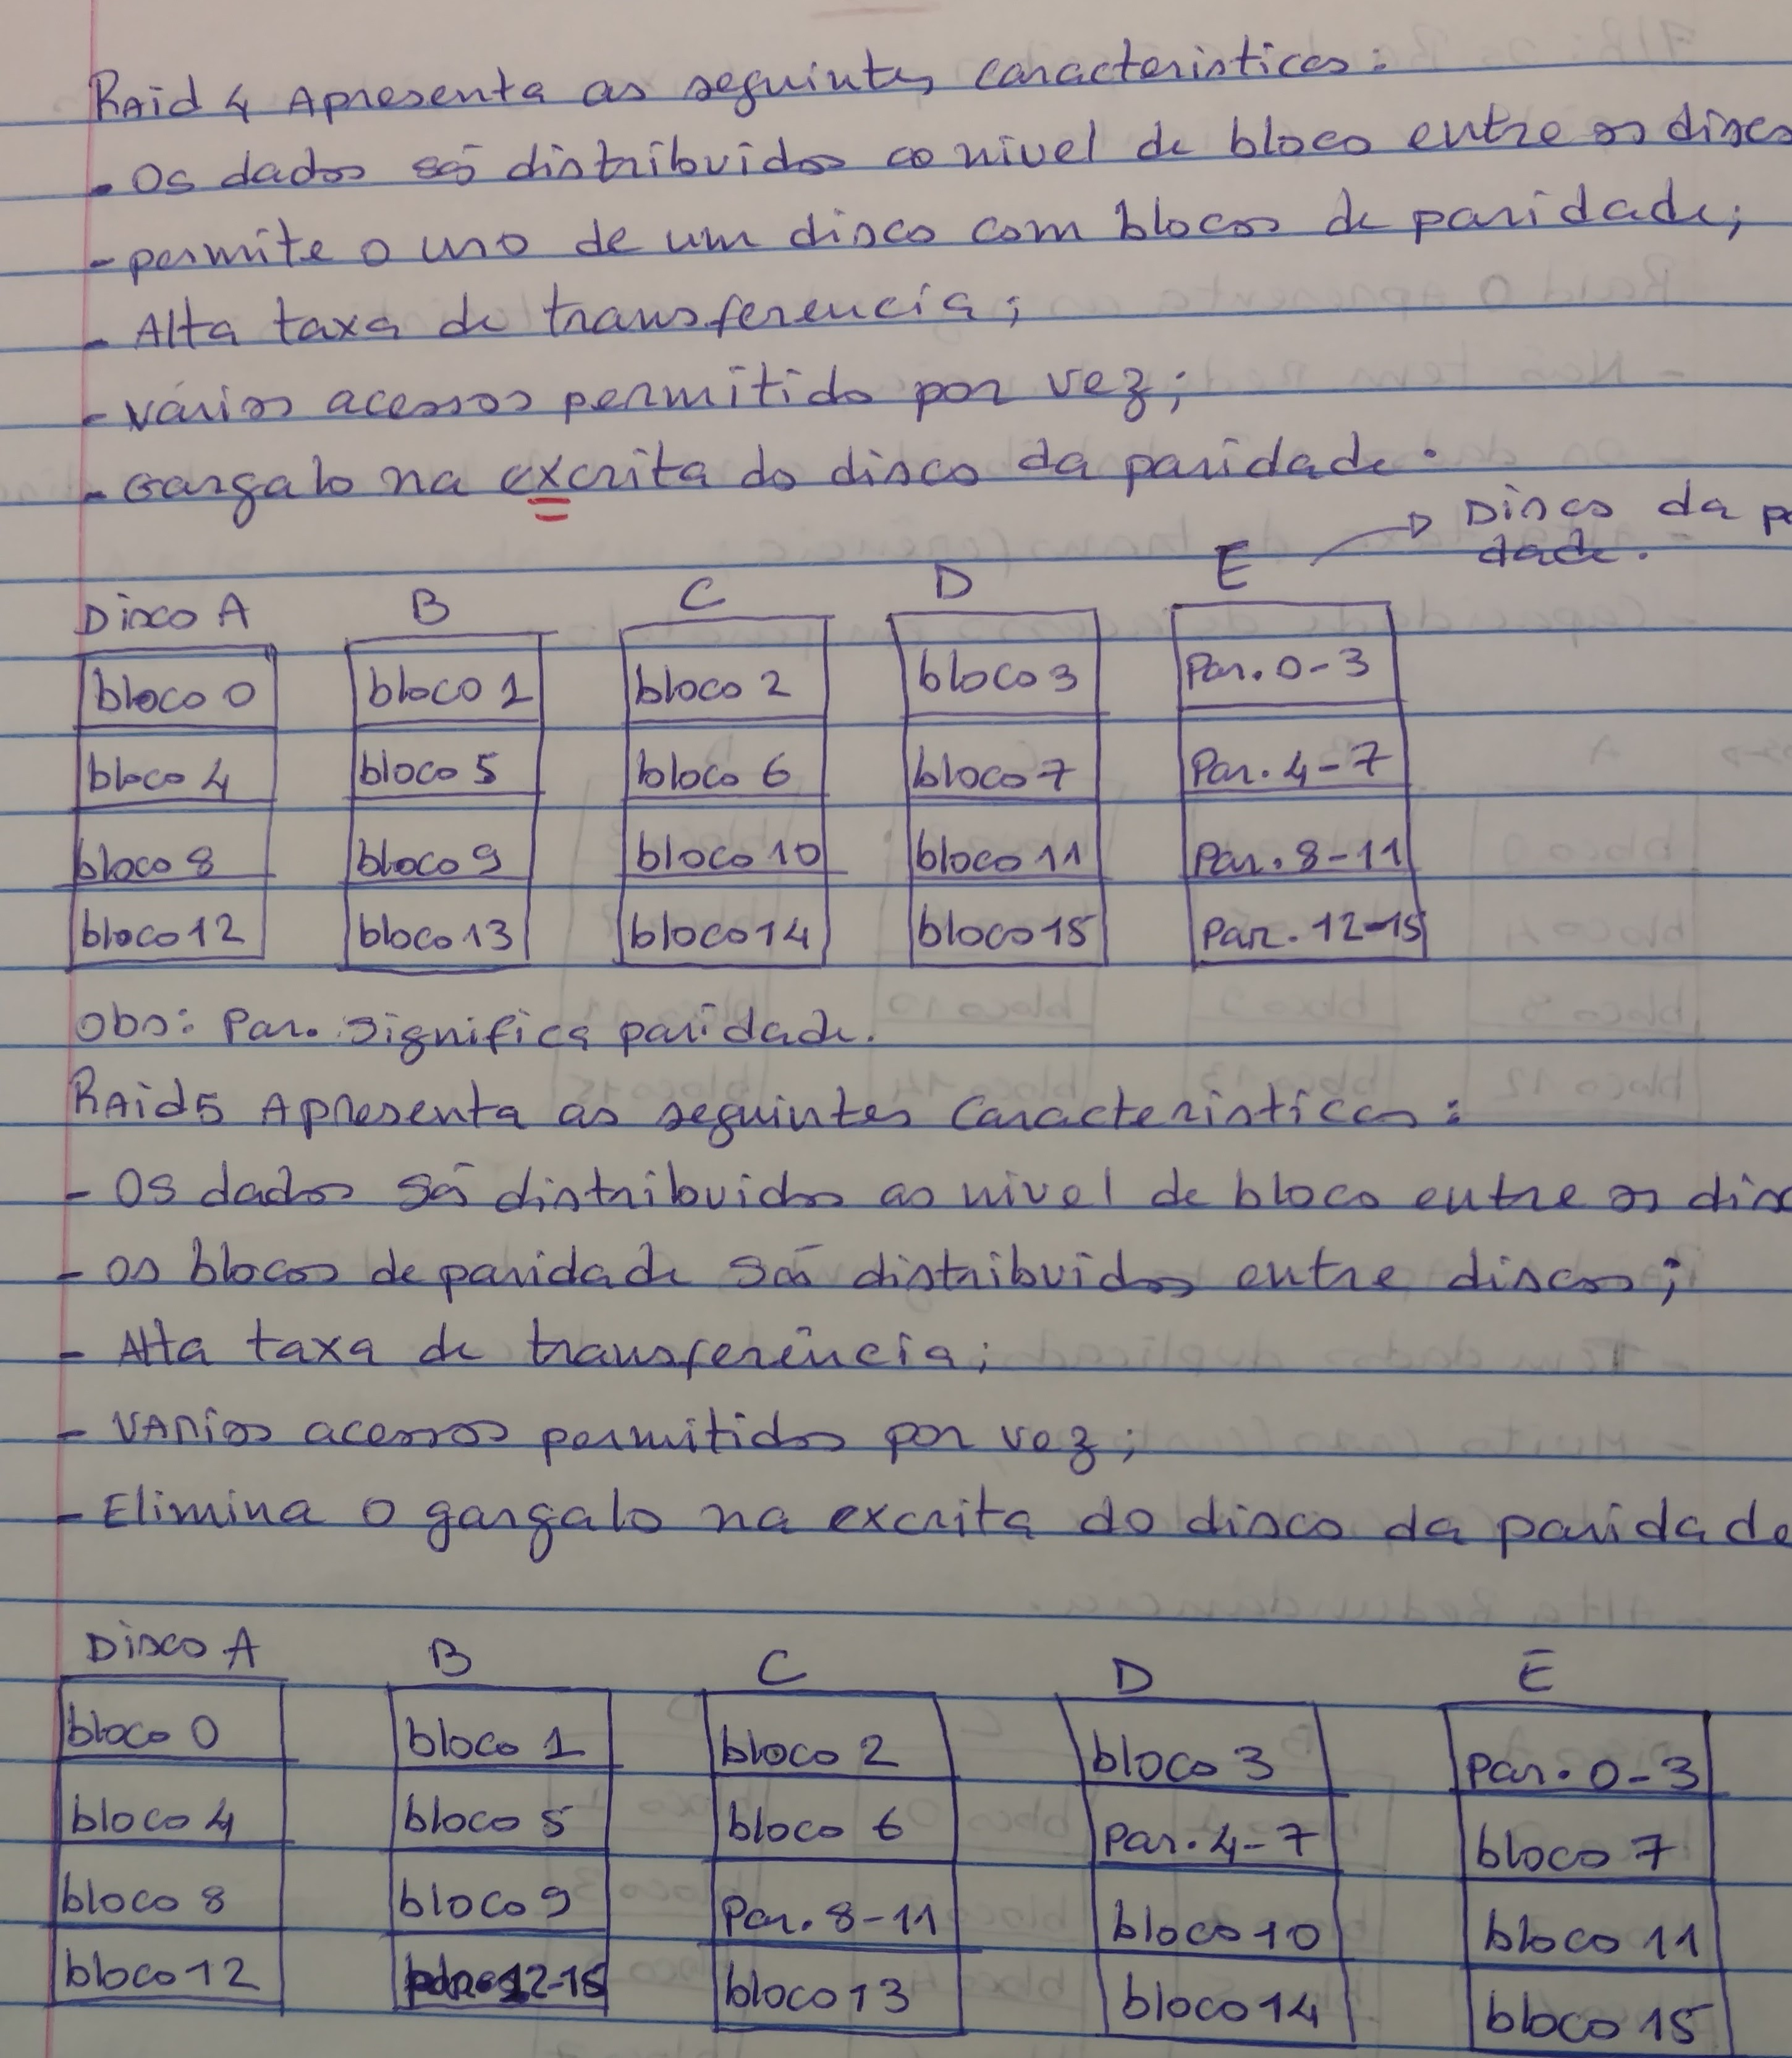 Raid 4 Apresenta as seguintes caracteristicas:
- Os dados são distribuidos ao nivel de bloco entre os disco
- permite o uso de um disco com blocos de paridade;
- Alta taxa de transferencia;
- vários acessos permitido por vez;
- Gargalo na excrita do disco da paridade.
Disco da pa
dade.
Disco A B C D E
bloco 0 bloco 1 bloco 2 bloco 3 Par. 0-3
bloco 4 bloco 5 bloco 6 bloco 7 Par. 4-7
bloco 8 bloco 9 bloco 10 bloco 11 Par. 8-11
bloco 12 bloco 13 bloco 14 bloco 15 Par. 12-15
Obs: Par. significa paridade.
Raid5 Apresenta as seguintes características:
- Os dados são distribuidos ao nivel de bloco entre os disc
- os blocos de paridade são distribuidos entre discos;
- Alta taxa de transferência;
- varios acessos permitidos por vez;
- Elimina o gargalo na excrita do disco da paridade
Disco A B C D E
bloco 0 bloco 1 bloco 2 bloco 3 Par. 0-3
bloco 4 bloco 5 bloco 6 Par. 4-7 bloco 7
bloco 8 bloco 9 Par. 8-11 bloco 10 bloco 11
bloco 12 12-15 bloco 13 bloco 14 bloco 15